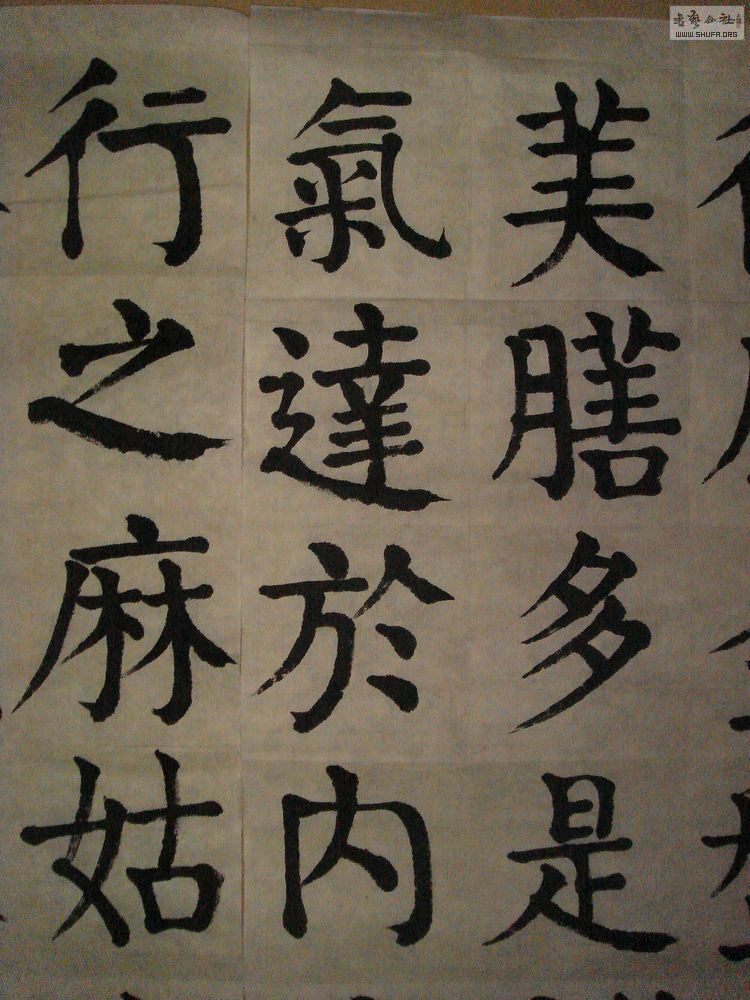 美膳多是
氣達於内
行之麻姑
書藝公社
WWW.SHUFA.ORG